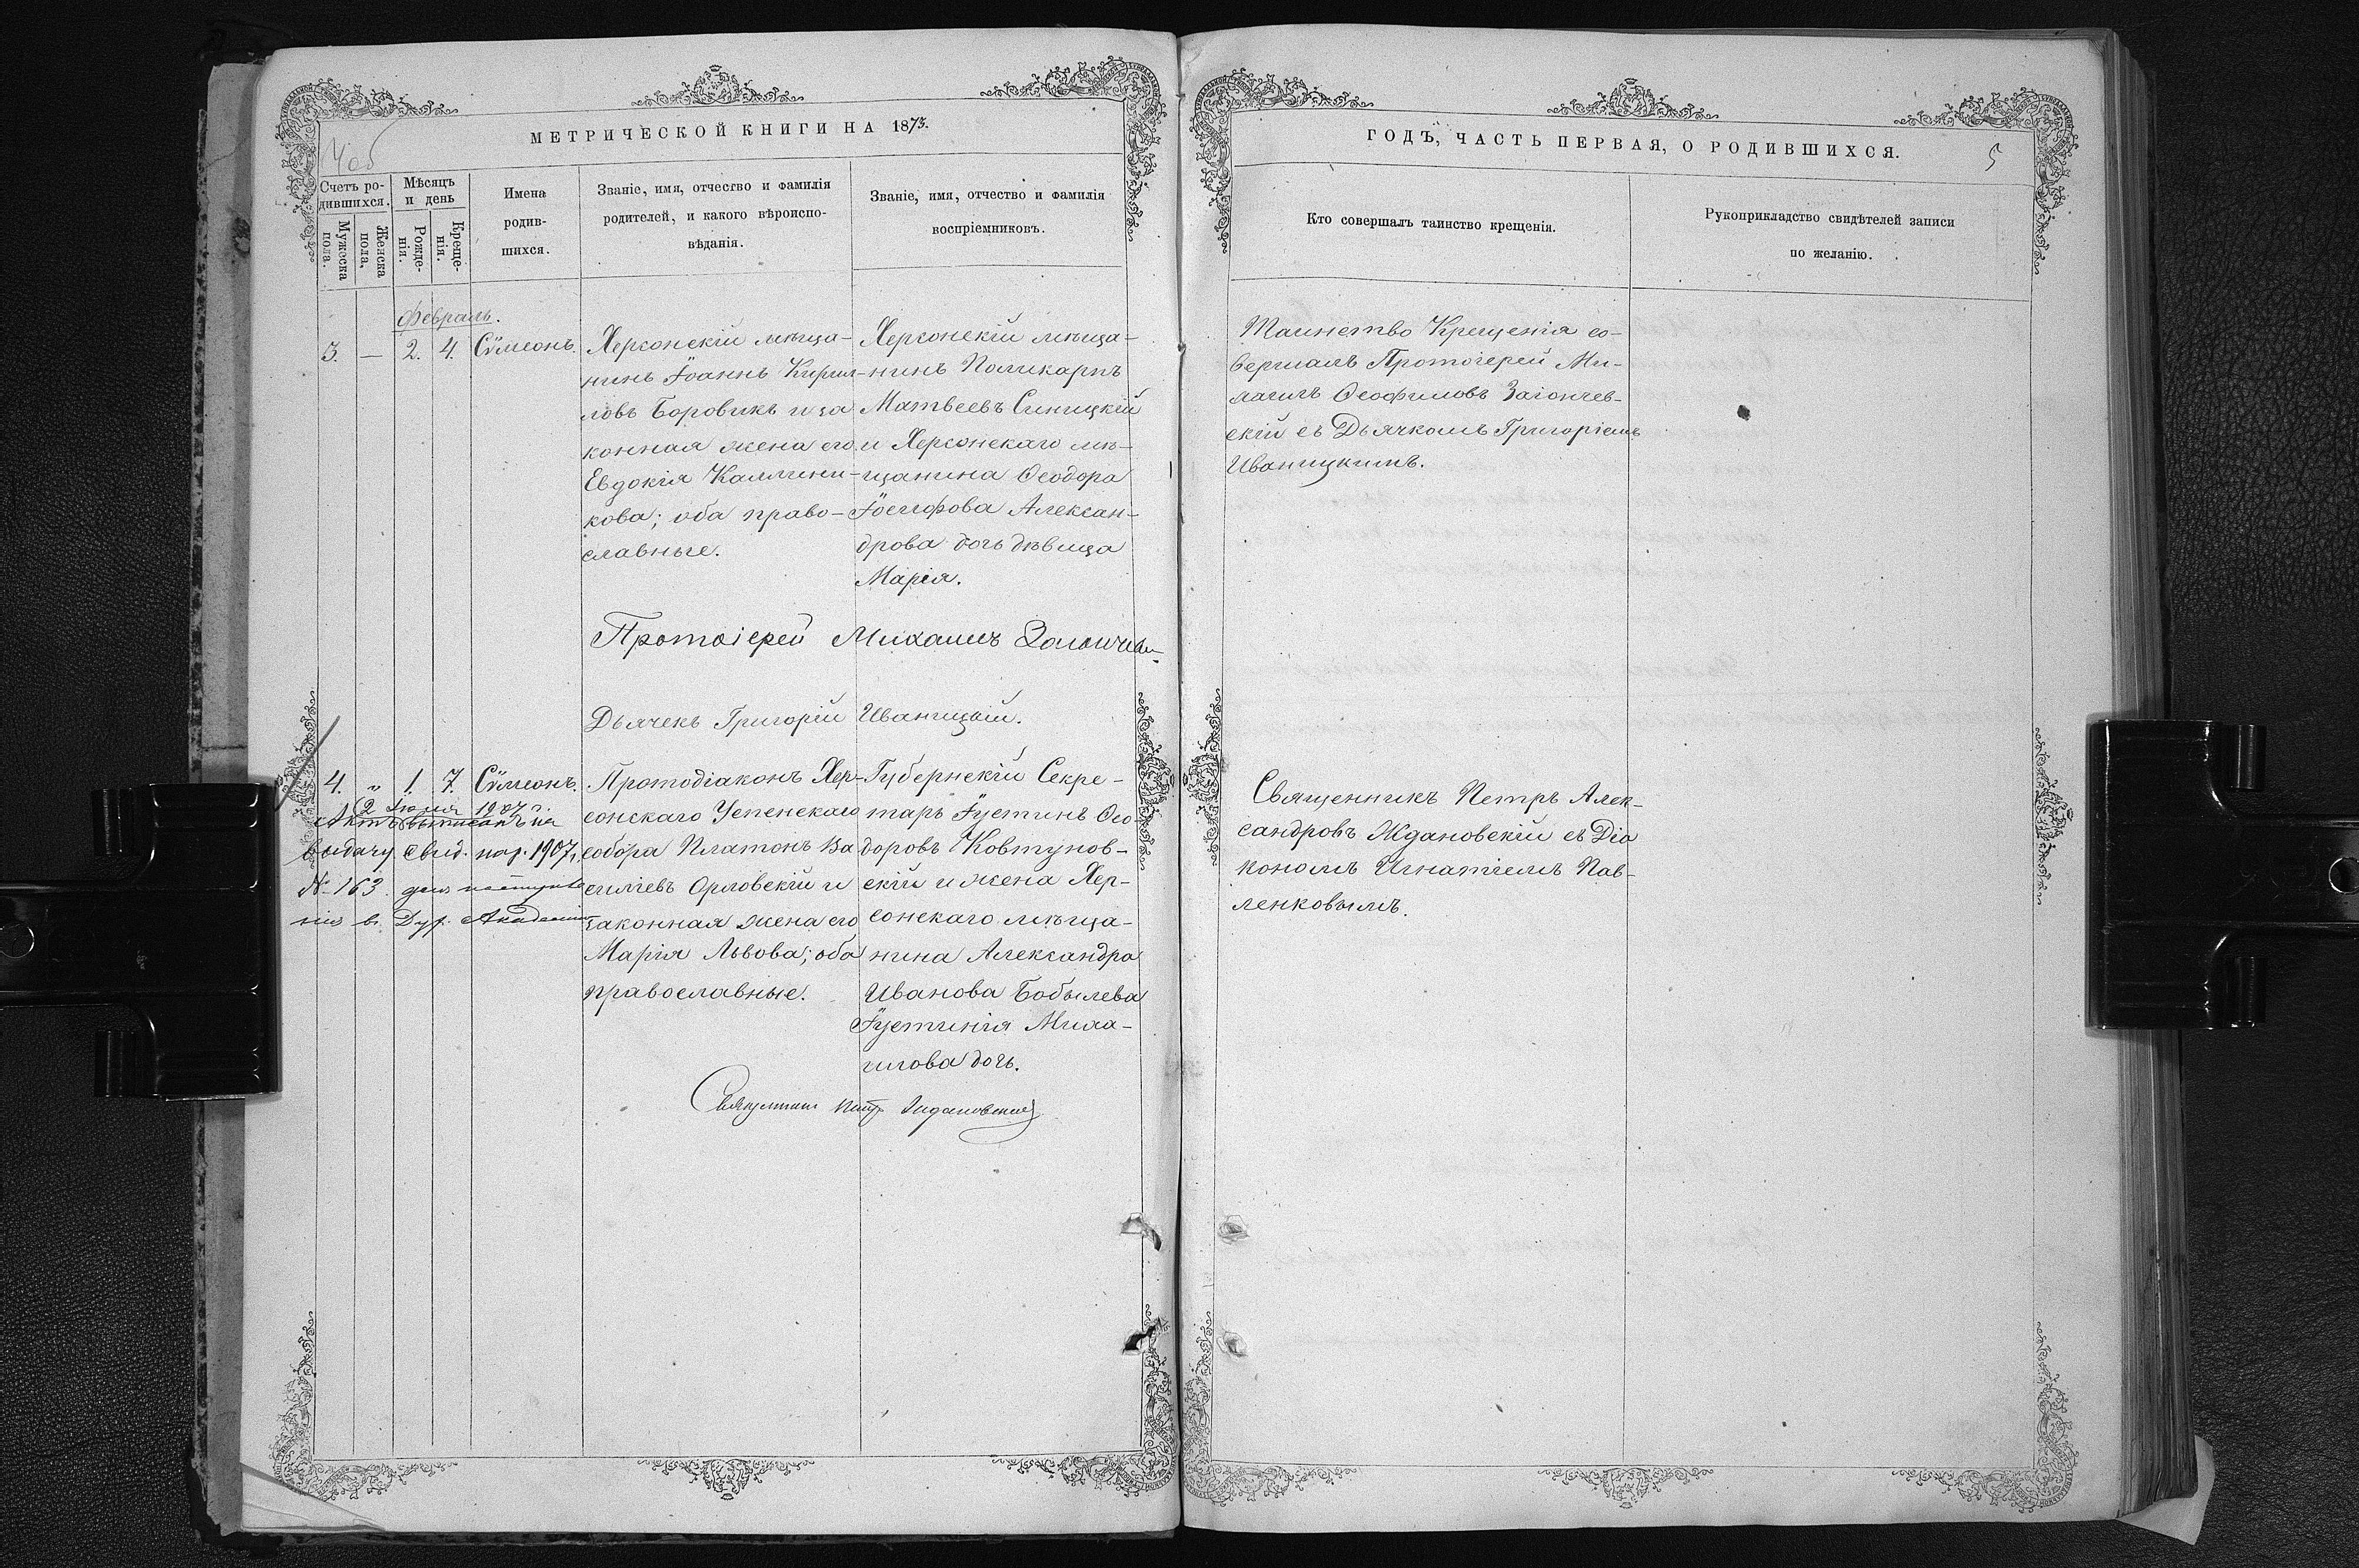 МЕТРИЧЕСКОЙ КНИГИ НА 1873.
Счетъ ро-
дившихся.
Мужеска
пола.
Женска
пола.
Мѣсяцъ
и день
Рожде-
нія.
Креще-
нія.
Имена
родив-
шихся.
Званіе, имя, отчество и фамилія
родителей, и какого вѣроиспо-
вѣданія.
Званіе, имя, отчество и фамилія
воспріемниковъ.
Февраль.
3. — 2. 4. Сѵмеонъ.
Херсонскій мѣща-
нинъ Іоаннъ Кирил-
ловъ Боровикъ и за
конная жена его
Евдокія Каллини-
кова; оба право-
славные.
Херсонскій мѣща-
нинъ Поликарпъ
Матвеевъ Синицкій
и Херсонскаго мѣ-
щанина Ѳеодора
Іосифова Алексан-
дрова дочь дѣвица
Марія.
Протоіерей Михаилъ
Дьячекъ Григорій Иваницкій.
4. „ 1. 7. Сѵмеонъ.
2 Іюня 1907 г.
Актъ выписанъ на
выдачу свид. 1907 г.
№ 163 для поступле
нія въ Дух. Академію
Протодіаконъ Хер-
сонскаго Успенскаго
собора Платонъ Ва
силіевъ Орловскій и
законная жена его
Марія Львова; оба
православные.
Губернскій Секре-
тарь Іустинъ Ѳео-
доровъ Ковтунов-
скій и жена Хер-
сонскаго мѣща-
нина Александра
Иванова Бобылева
Іустинія Миха-
илова дочь.
Священникъ Петръ Ждановскій
ГОДЪ, ЧАСТЬ ПЕРВАЯ, О РОДИВШИХСЯ.
5
Кто совершалъ таинство крещенія.
Рукоприкладство свидѣтелей записи
по желанію.
Таинство Крещенія со-
вершалъ Протоіерей Ми-
хаилъ Ѳеофиловъ Заіончев-
скій съ Дьячкомъ Григоріемъ
Иваницкимъ.
Священникъ Петръ Алек-
сандровъ Ждановскій съ Діа
кономъ Игнатіемъ Пав-
ленковымъ.